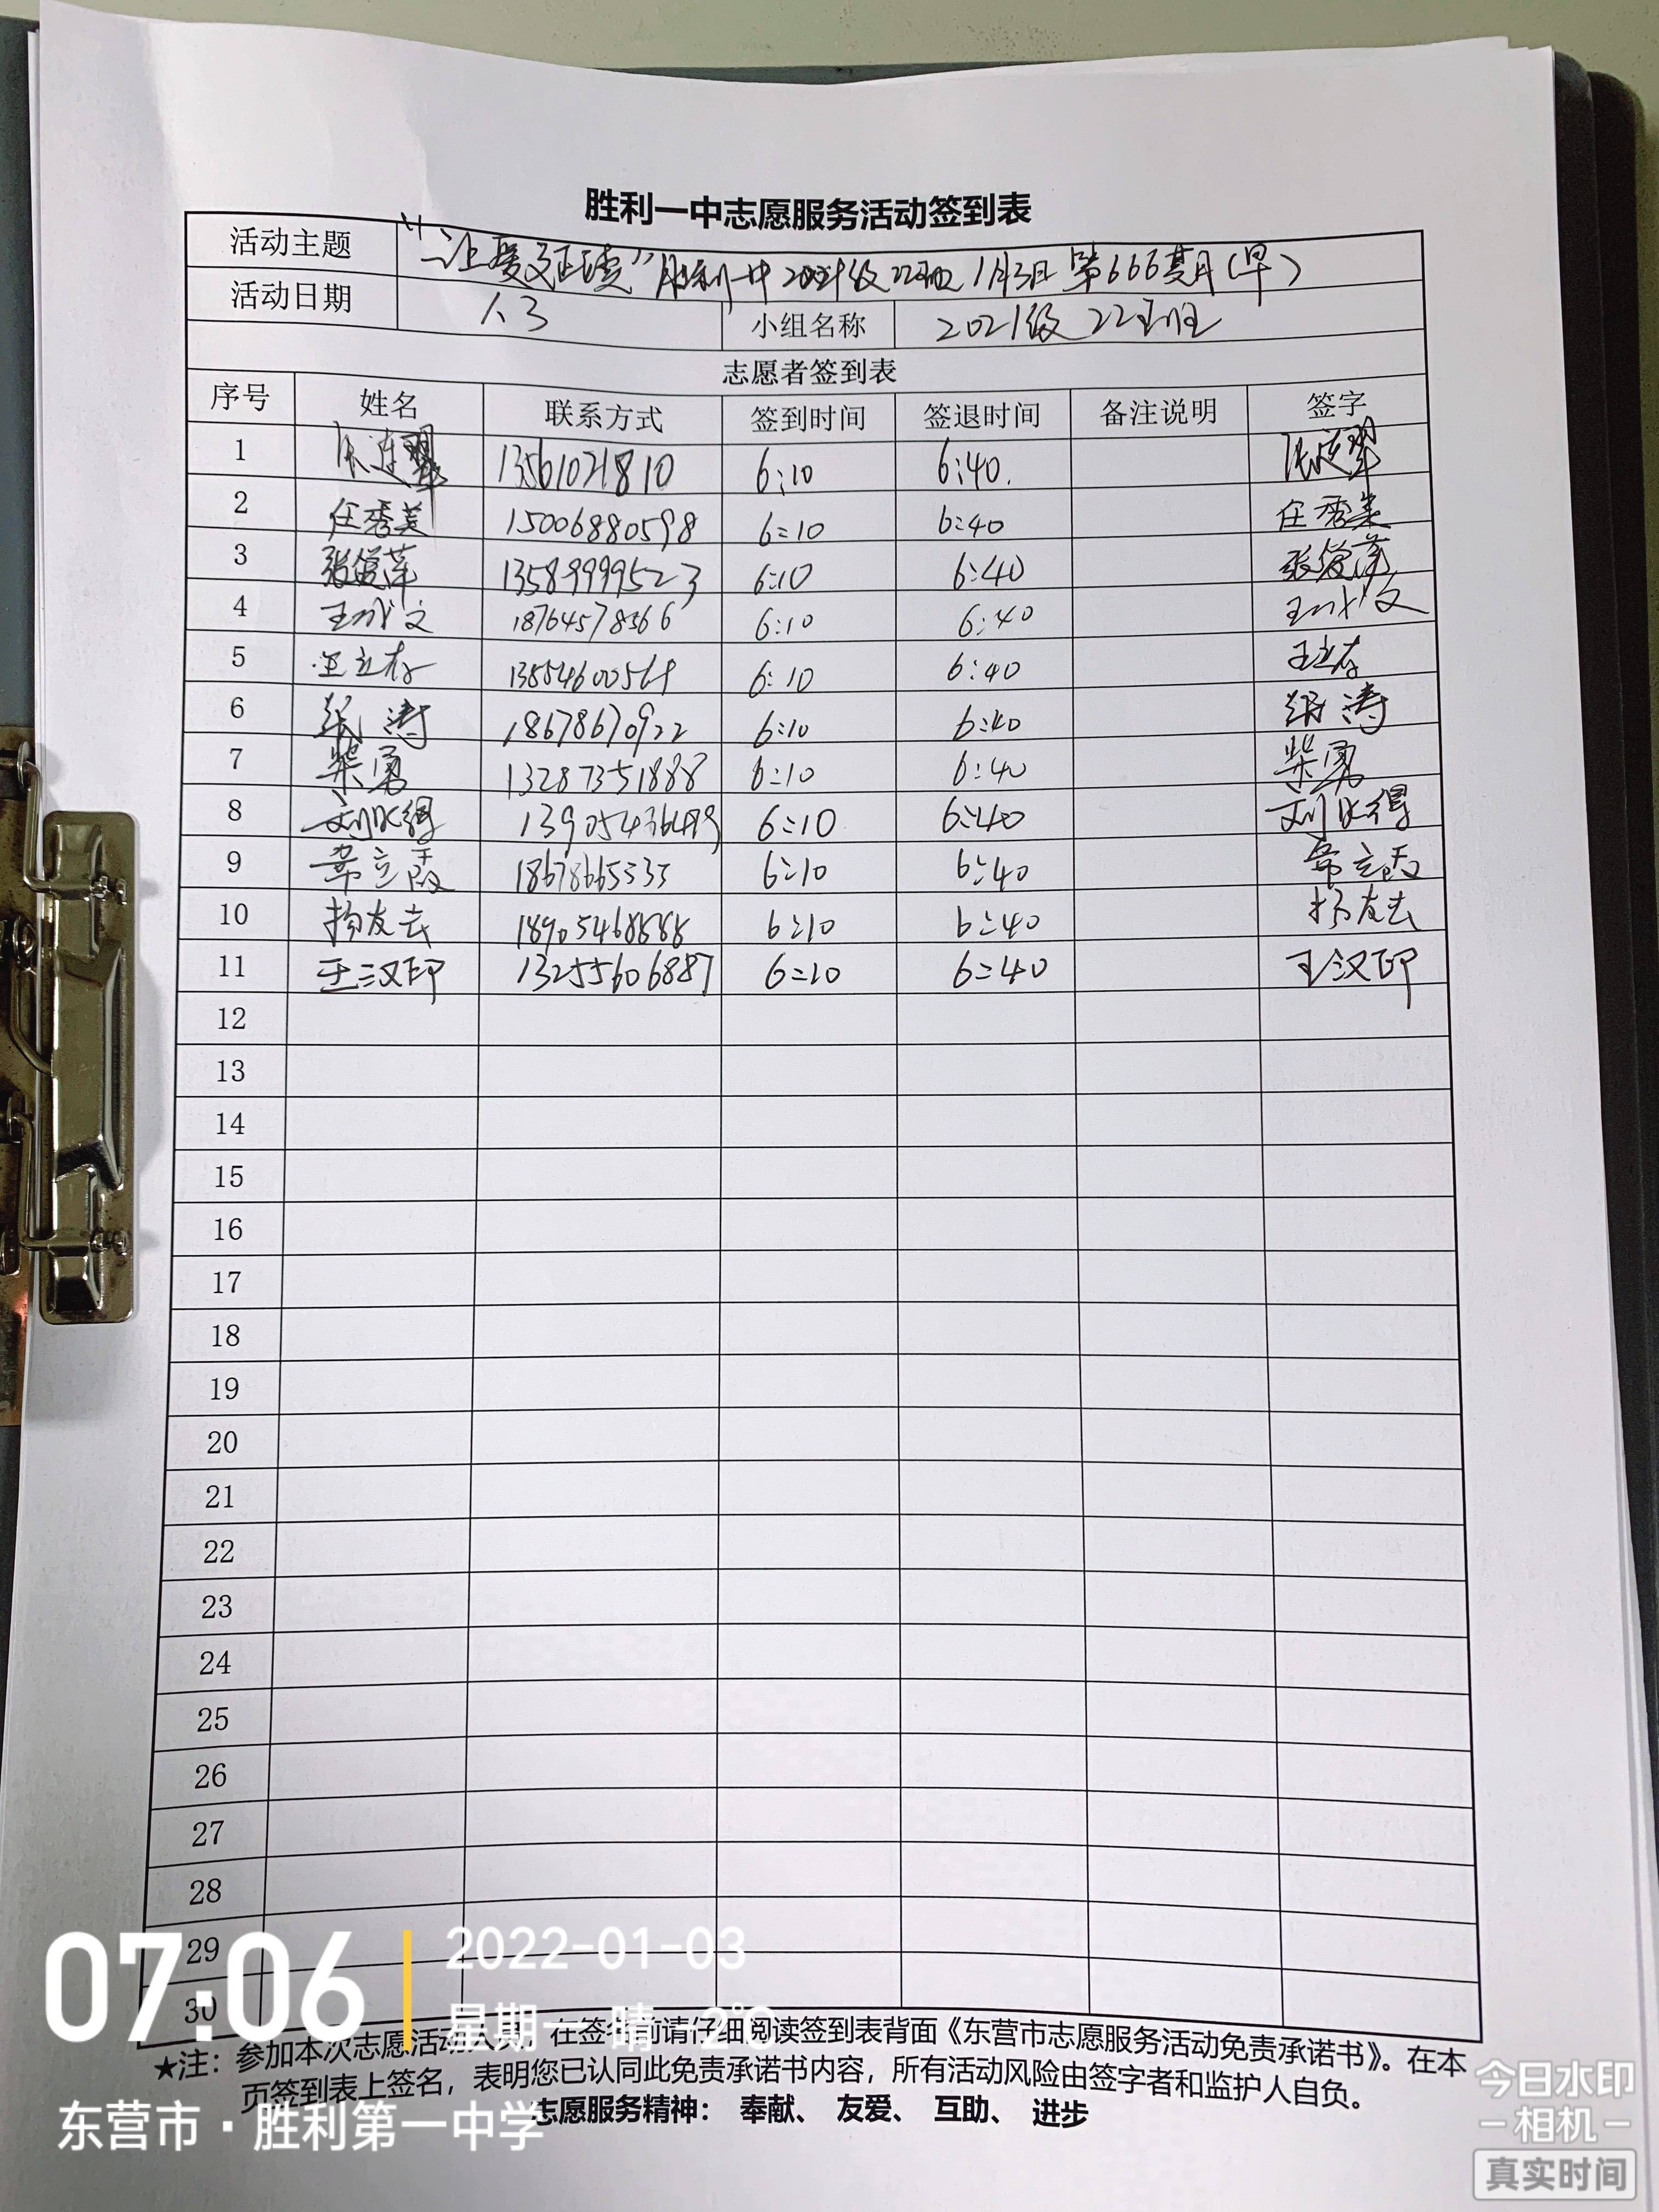 胜利一中志愿服务活动签到表
活动主题 “让爱延续”胜利一中2021级22班1月3日第666期(早)
活动日期 1.3 小组名称 2021级22班
志愿者签到表
序号 姓名 联系方式 签到时间 签退时间 备注说明 签字
1 张连翠 13561021810 6:10 6:40. 张连翠
2 任秀美 15006880598 6:10 6:40 任秀美
3 张爱萍 13589999523 6:10 6:40 张爱萍
4 王成文 18764578366 6:10 6:40 王成文
5 王立存 6:10 6:40 王立存
6 纸涛 18678670922 6:10 6:40 纸涛
7 柴勇 13287351888 6:10 6:40 柴勇
8 6:10 6:40
9 常立霞 18678665535 6:10 6:40 常立霞
10 杨友志 18905468888 6:10 6:40 杨友志
11 王汉印 13255606887 6:10 6:40 王汉印
12
13
14
15
16
17
18
19
20
21
22
23
24
25
26
27
28
29
30
07:06
2022-01-03
星期一 晴 -2℃
★注：参加本次志愿活动人员，在签名前请仔细阅读签到表背面《东营市志愿服务活动免责承诺书》。在本
页签到表上签名，表明您已认同此免责承诺书内容，所有活动风险由签字者和监护人自负。
志愿服务精神： 奉献、 友爱、 互助、 进步
东营市·胜利第一中学
今日水印
相机
真实时间